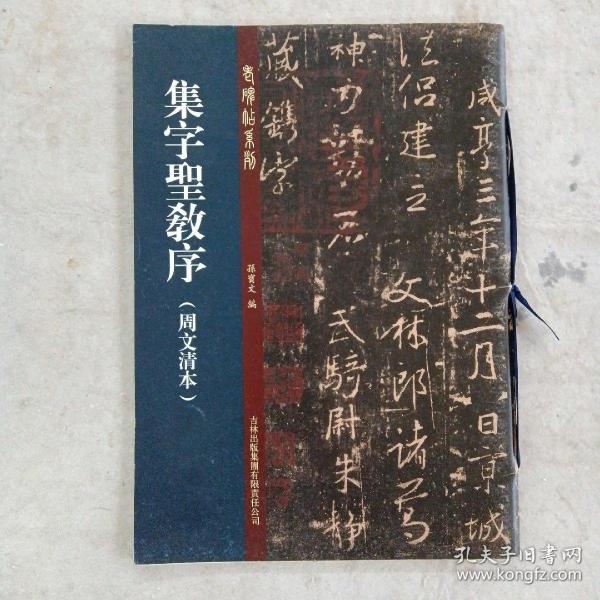 咸亨三年十二月八日京城
法侣建立 文林郎诸葛
神力勒石 武騎尉朱静
藏鐫字
老碑帖系列
孫寶文 編
吉林出版集團有限責任公司
集字聖教序
（周文清本）
孔夫子旧书网
www.kongfz.com